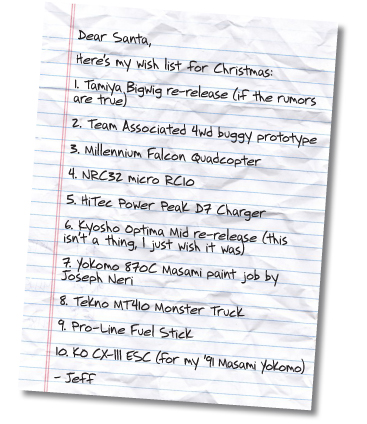 Dear Santa,
Here's my wish list for Christmas:
1. Tamiya Bigwig re-release (if the rumors
are true)
2. Team Associated 4wd buggy prototype
3. Millennium Falcon Quadcopter
4. NRC32 micro RC10
5. HiTec Power Peak D7 Charger
6. Kyosho Optima Mid re-release (this
isn't a thing, I just wish it was)
7. Yokomo 870C Masami paint job by
Joseph Neri
8. Tekno MT410 Monster Truck
9. Pro-Line Fuel Stick
10. KO CX-III ESC (for my '91 Masami Yokomo)
- Jeff